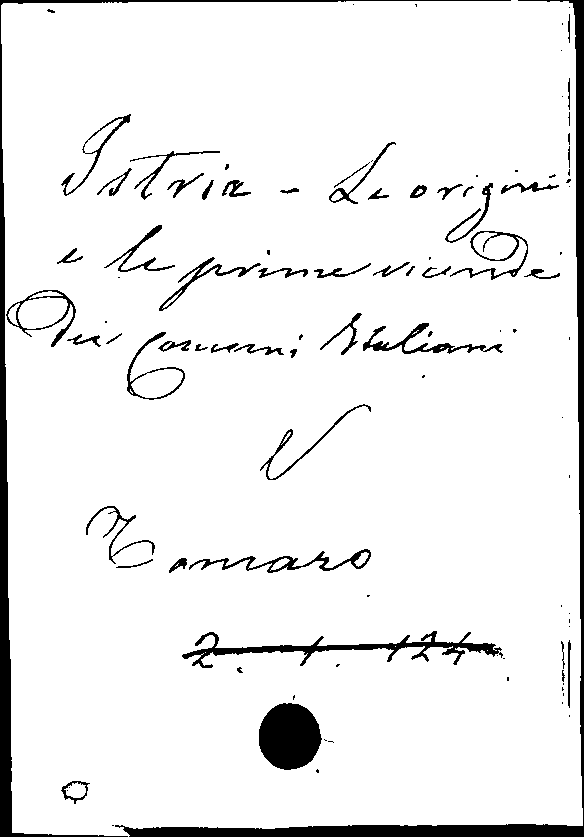 Istria - Le origini
e le prime vicende
dei Comuni Italiani
V
Tamaro
2. 1. 124